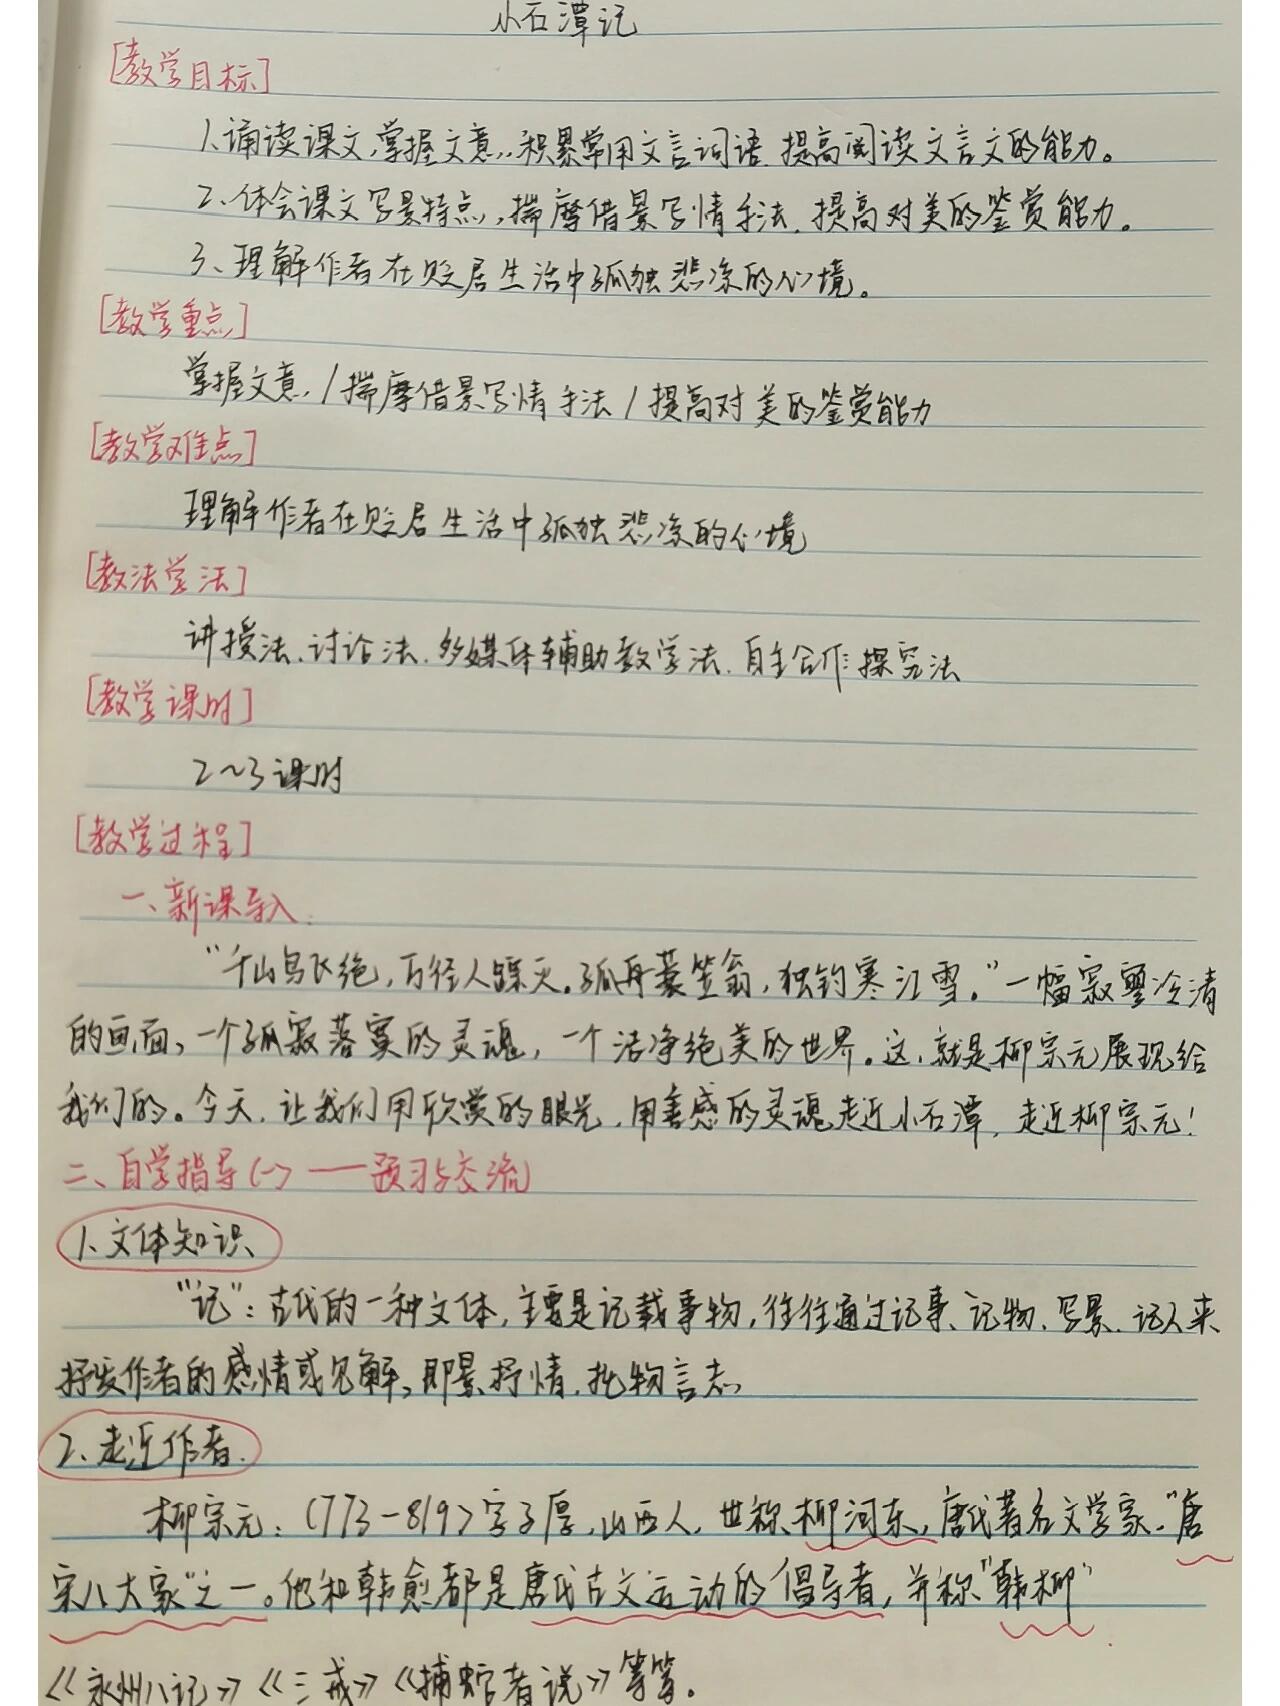 小石潭记
[教学目标]
1、诵读课文,掌握文意,积累常用文言词语,提高阅读文言文的能力。
2、体会课文写景特点,揣摩借景写情手法,提高对美的鉴赏能力。
3、理解作者在贬居生活中孤独悲凉的心境。
[教学重点]
掌握文意,/揣摩借景写情手法/提高对美的鉴赏能力
[教学难点]
理解作者在贬居生活中孤独悲凉的心境
[教法学法]
讲授法、讨论法、多媒体辅助教学法、自主合作探究法
[教学课时]
2~3课时
[教学过程]
一、新课导入:
“千山鸟飞绝,万径人踪灭。孤舟蓑笠翁,独钓寒江雪。”一幅寂寥冷清
的画面,一个孤寂落寞的灵魂,一个洁净绝美的世界。这,就是柳宗元展现给
我们的。今天,让我们用欣赏的眼光,用善感的灵魂走近小石潭,走近柳宗元!
二、自学指导(一)——预习与交流
1、文体知识
“记”:古代的一种文体,主要是记载事物,往往通过记事、记物、写景、记人来
抒发作者的感情或见解,即景抒情,托物言志
2、走近作者.
柳宗元:(773-819)字子厚,山西人,世称柳河东,唐代著名文学家,“唐
宋八大家”之一。他和韩愈都是唐代古文运动的倡导者,并称“韩柳”
《永州八记》《三戒》《捕蛇者说》等等。